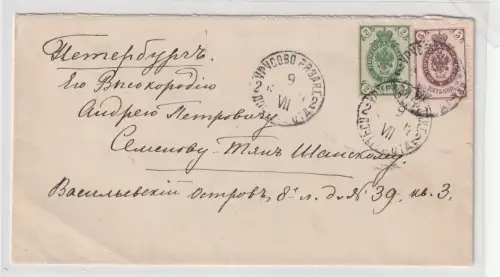 Петербургъ.
Его Высокородію
Андрею Петровичу
Семенову-Тянъ Шанскому.
Васильевскій островъ, 8я л. д. № 39. кв. 3.
УРУСОВО РЯЗАН
9
VII
2
5
9
VII